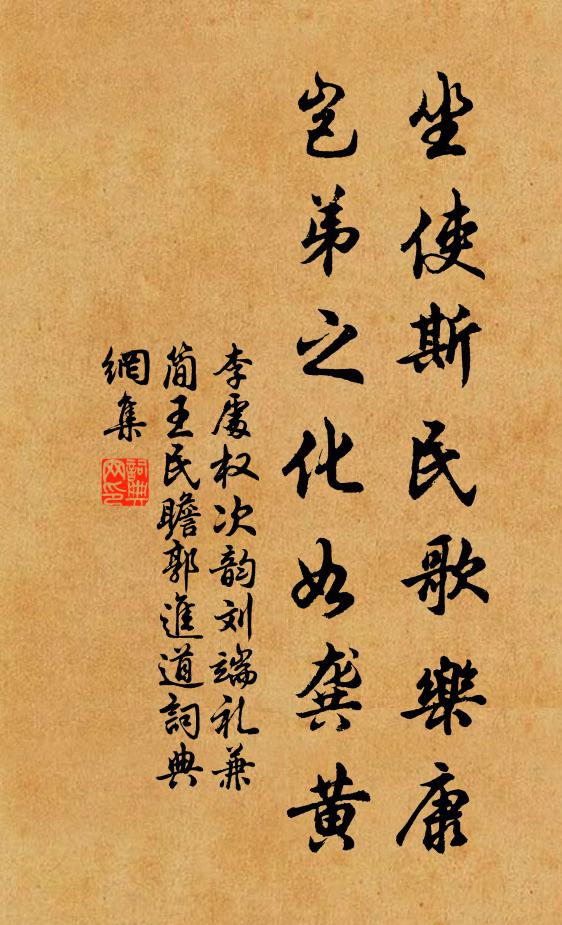 坐使斯民歌樂康
岂弟之化如龔黄
李處权次韵刘端礼兼
简王民瞻郭進道詞典
網集
詞典
网印